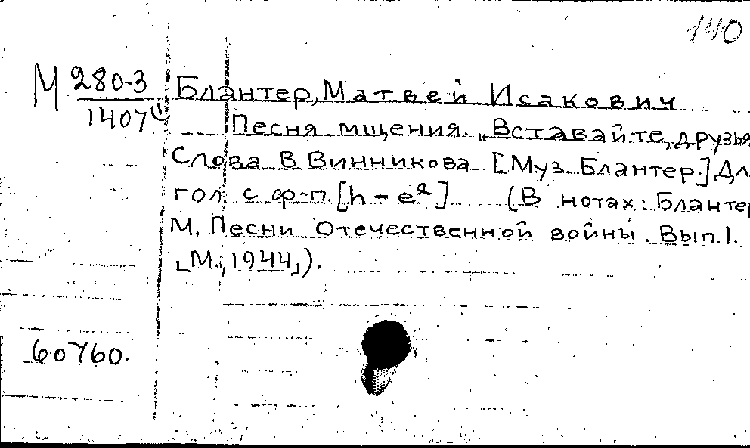 140
М 280-3
1407
Блантер, Матвей Исакович
Песня мщения. „Вставайте, друзья
Слова В Винникова [Муз. Блантер.] Дл
гол с ф-п. [h - e²] (В нотах: Блантер
М. Песни Отечественной войны. Вып. 1.
[М., 1944]).
60760.